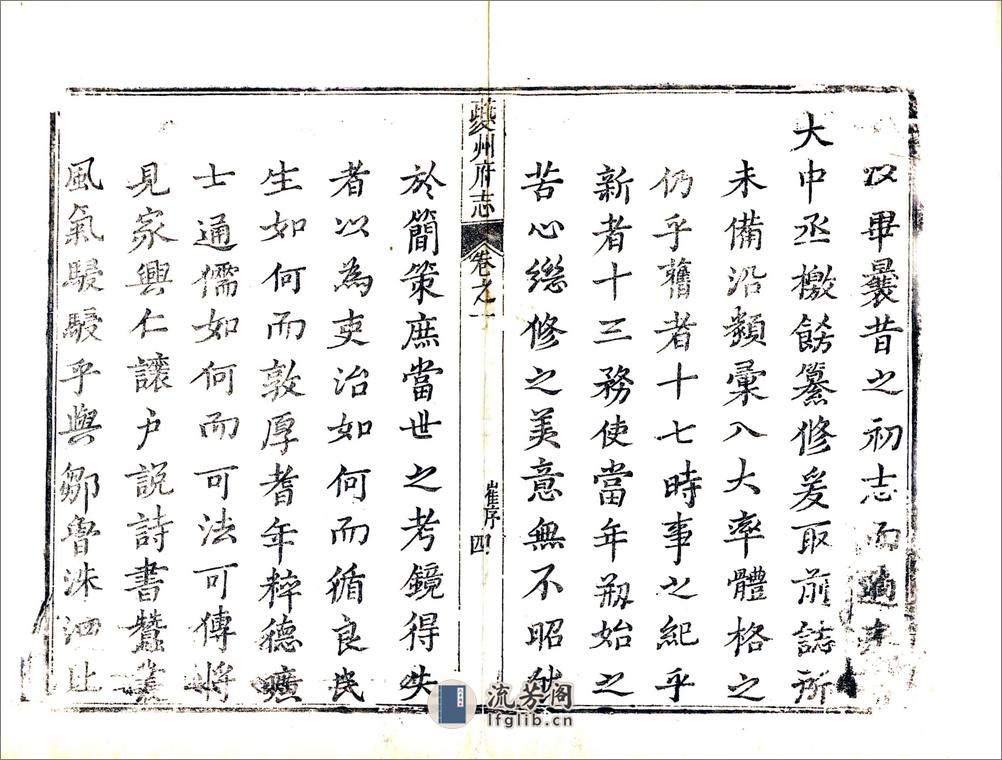 以畢曩昔之初志而適奉
大中丞檄飭纂修爰取前誌所
未備沿類彙入大率體格之
仍乎舊者十七時事之紀乎
新者十三務使當年剏始之
苦心繼修之美意無不昭然
夔州府志 卷之一 崔序 四
於簡策庶當世之考鏡得失
者以為吏治如何而循良民
生如何而敦厚耆年粹德曠
士通儒如何而可法可傳將
見家興仁讓户説詩書蠶叢
風氣駸駸乎與鄒魯洙泗比
流芳阁
lfglib.cn